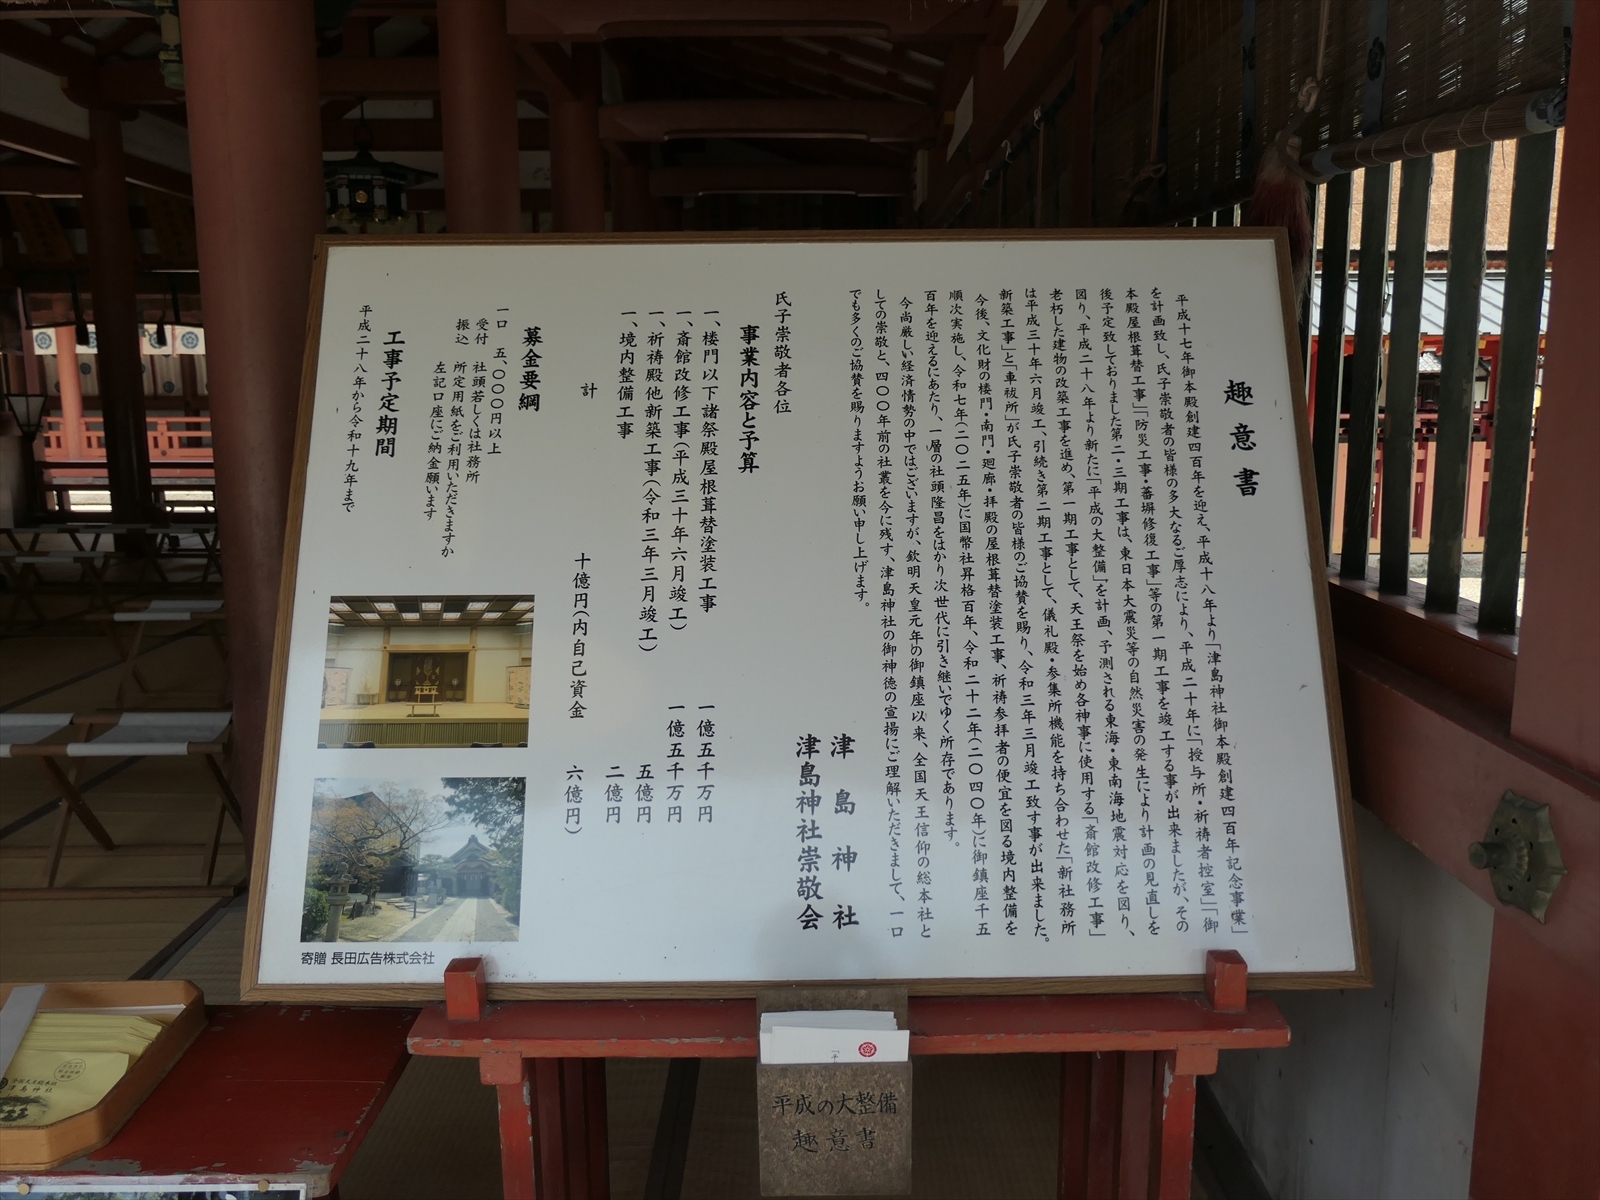 趣意書
平成十七年御本殿創建四百年を迎え、平成十八年より「津島神社御本殿創建四百年記念事業」
を計画致し、氏子崇敬者の皆様の多大なるご厚志により、平成二十年に「授与所・祈祷者控室」「御
本殿屋根葺替工事」「防災工事・蕃塀修復工事」等の第一期工事を竣工する事が出来ましたが、その
後予定致しておりました第二・三期工事は、東日本大震災等の自然災害の発生により計画の見直しを
図り、平成二十八年より新たに「平成の大整備」を計画、予測される東海・東南海地震対応を図り、
老朽した建物の改築工事を進め、第一期工事として、天王祭を始め各神事に使用する「斎館改修工事」
は平成三十年六月竣工、引続き第二期工事として、儀礼殿・参集所機能を持ち合わせた「新社務所
新築工事」と「車祓所」が氏子崇敬者の皆様のご協賛を賜り、令和三年三月竣工致す事が出来ました。
今後、文化財の楼門・南門・廻廊・拝殿の屋根葺替塗装工事、祈祷参拝者の便宜を図る境内整備を
順次実施し、令和七年(二〇二五年)に国幣社昇格百年、令和二十二年(二〇四〇年)に御鎮座千五
百年を迎えるにあたり、一層の社頭隆昌をはかり次世代に引き継いでゆく所存であります。
今尚厳しい経済情勢の中ではございますが、欽明天皇元年の御鎮座以来、全国天王信仰の総本社と
しての崇敬と、四〇〇年前の社叢を今に残す、津島神社の御神徳の宣揚にご理解いただきまして、一口
でも多くのご協賛を賜りますようお願い申し上げます。
津島神社
津島神社崇敬会
氏子崇敬者各位
事業内容と予算
一、楼門以下諸祭殿屋根葺替塗装工事 一億五千万円
一、斎館改修工事(平成三十年六月竣工) 一億五千万円
一、祈祷殿他新築工事(令和三年三月竣工) 五億円
一、境内整備工事 二億円
計 十億円(内自己資金 六億円)
募金要綱
一口 五、〇〇〇円以上
受付 社頭若しくは社務所
振込 所定用紙をご利用いただきますか
左記口座にご納金願います
工事予定期間
平成二十八年から令和十九年まで
寄贈 長田広告株式会社
平成の大整備
趣意書
津島神社